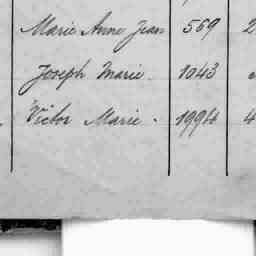 Marie Anne Jean 569 2
Joseph Marie. 1043
Victor Marie. 1994 4